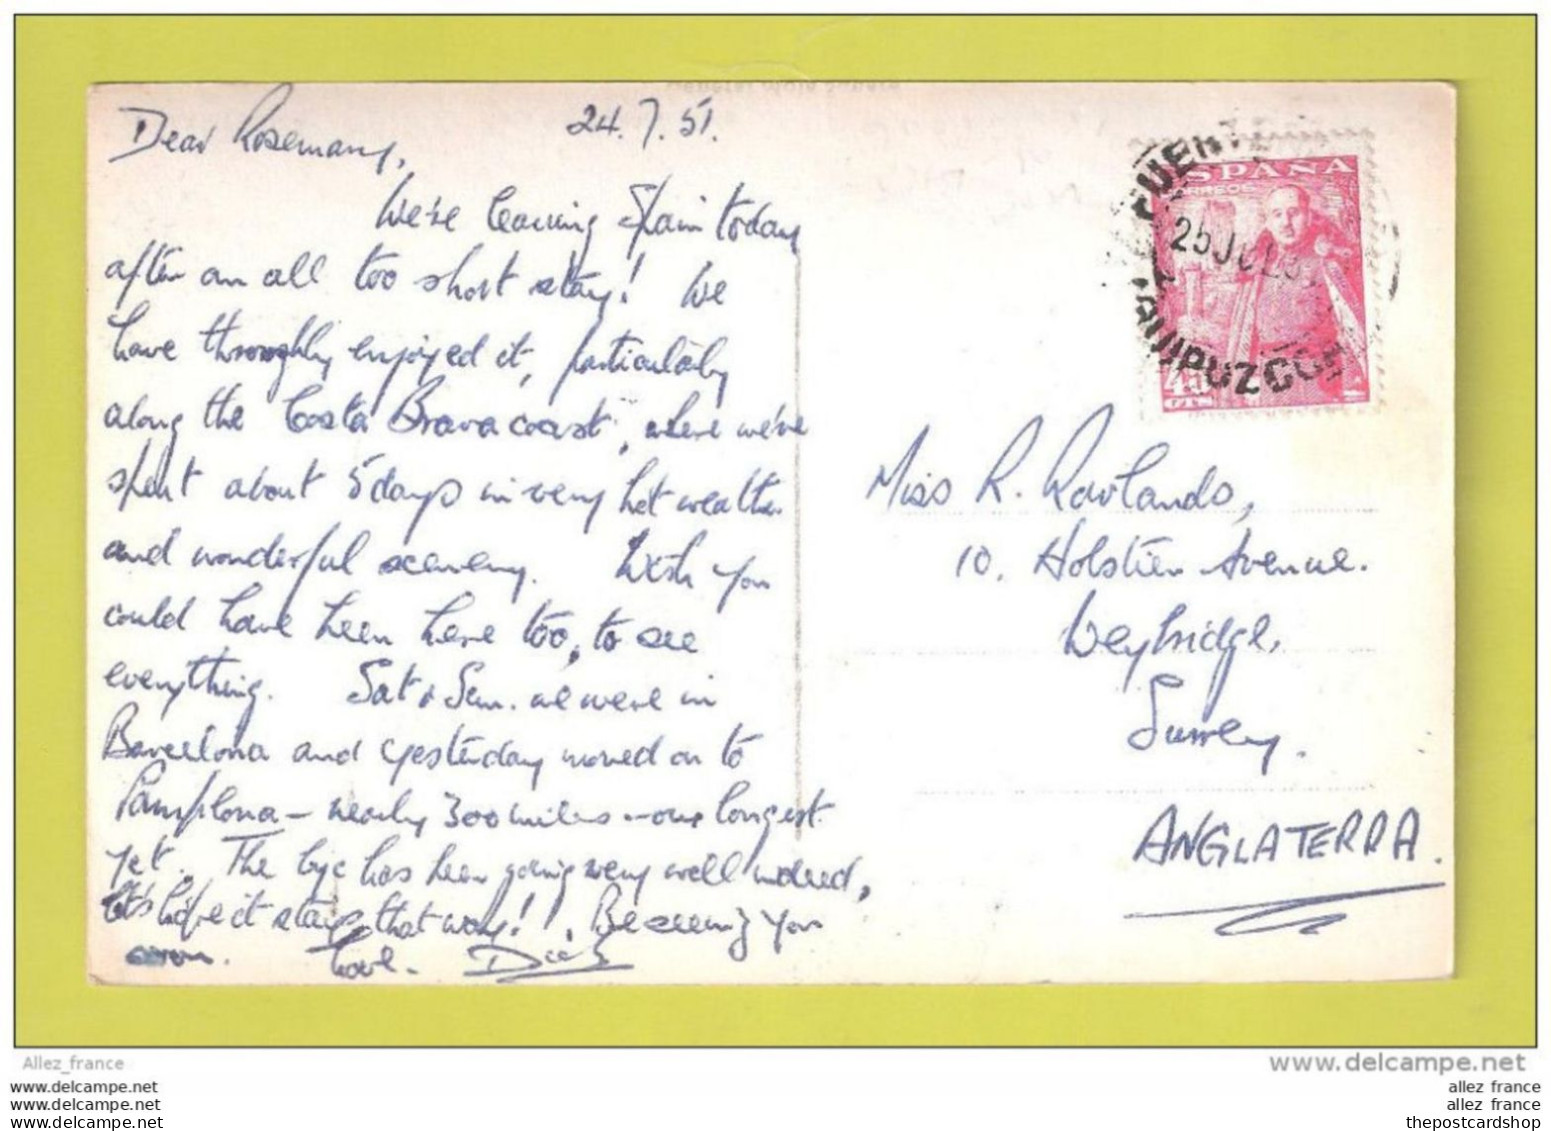 24.7.51.
Dear Rosemary,
We're leaving Spain today
after an all too short stay! We
have thoroughly enjoyed it, particularly
along the Costa Brava coast, where we've
spent about 5 days in very hot weather
and wonderful scenery. Wish you
could have been here too, to see
everything. Sat & Sun. we were in
Barcelona and yesterday moved on to
Pamplona – nearly 300 miles – our longest
yet. The bike has been going very well indeed,
let's hope it stays that way!! Be seeing you
soon. Love. Dick
ESPAÑA
CORREOS
25 JUL 5
GUIPUZCOA
45
CTS
Miss R. Rowlands,
10, Holstein Avenue.
Weybridge,
Surrey.
ANGLATERRA.
Allez_france
www.delcampe.net
www.delcampe.net
www.delcampe.net
www.delcampe.net
allez france
allez france
thepostcardshop